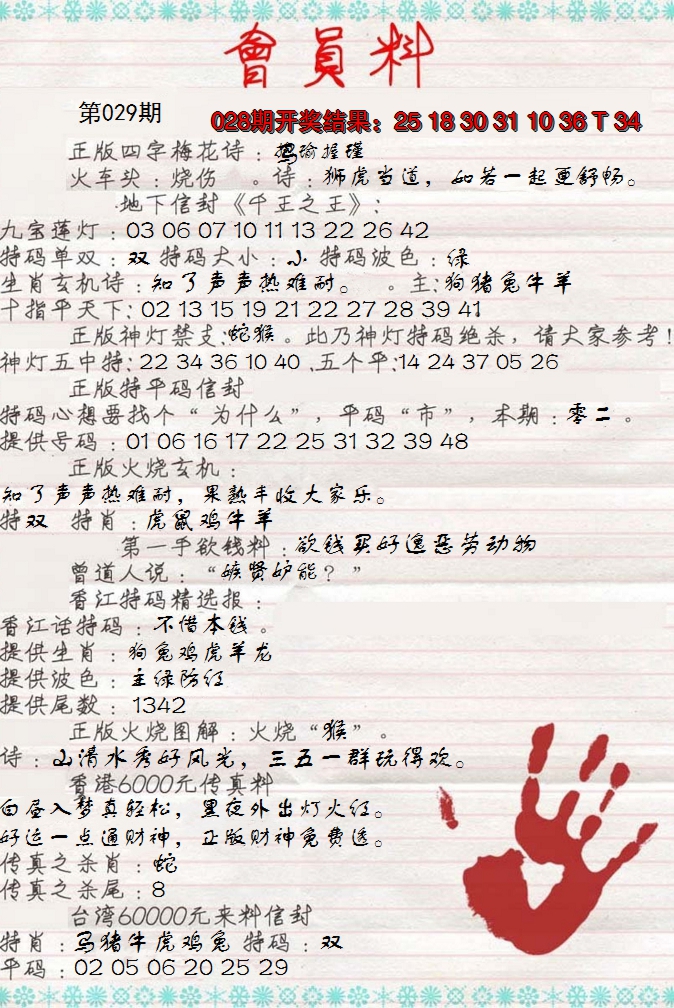 會員料
第029期
028期开奖结果：25 18 30 31 10 36 T 34
正版四字梅花诗：瑜握瑾
火车头：烧伤 。诗：狮虎当道，如若一起更舒畅。
地下信封《千王之王》：
九宝莲灯：03 06 07 10 11 13 22 26 42
特码单双：双 特码大小：小 特码波色：绿
生肖玄机诗：知了声声热难耐。 。主：狗猪兔牛羊
十指平天下：02 13 15 19 21 22 27 28 39 41
正版神灯禁支：蛇猴。此乃神灯特码绝杀，请大家参考！
神灯五中特：22 34 36 10 40 .五个平：14 24 37 05 26
正版特平码信封
特码心想要找个“为什么”，平码“市”，本期：零二。
提供号码：01 06 16 17 22 25 31 32 39 48
正版火烧玄机：
知了声声热难耐，果熟丰收大家乐。
特双 特肖：虎鼠鸡牛羊
第一手欲钱料：欲钱买好逸恶劳动物
曾道人说：“嫉贤妒能？”
香江特码精选报：
香江话特码：不借本钱。
提供生肖：狗兔鸡虎羊龙
提供波色：主绿防红
提供尾数：1342
正版火烧图解：火烧“猴”。
诗：山清水秀好风光，三五一群玩得欢。
香港6000元传真料
白昼入梦真轻松，黑夜外出灯火红。
好运一点通财神，正版财神免费送。
传真之杀肖：蛇
传真之杀尾：8
台湾60000元来料信封
特肖：马猪牛虎鸡兔 特码：双
平码：02 05 06 20 25 29